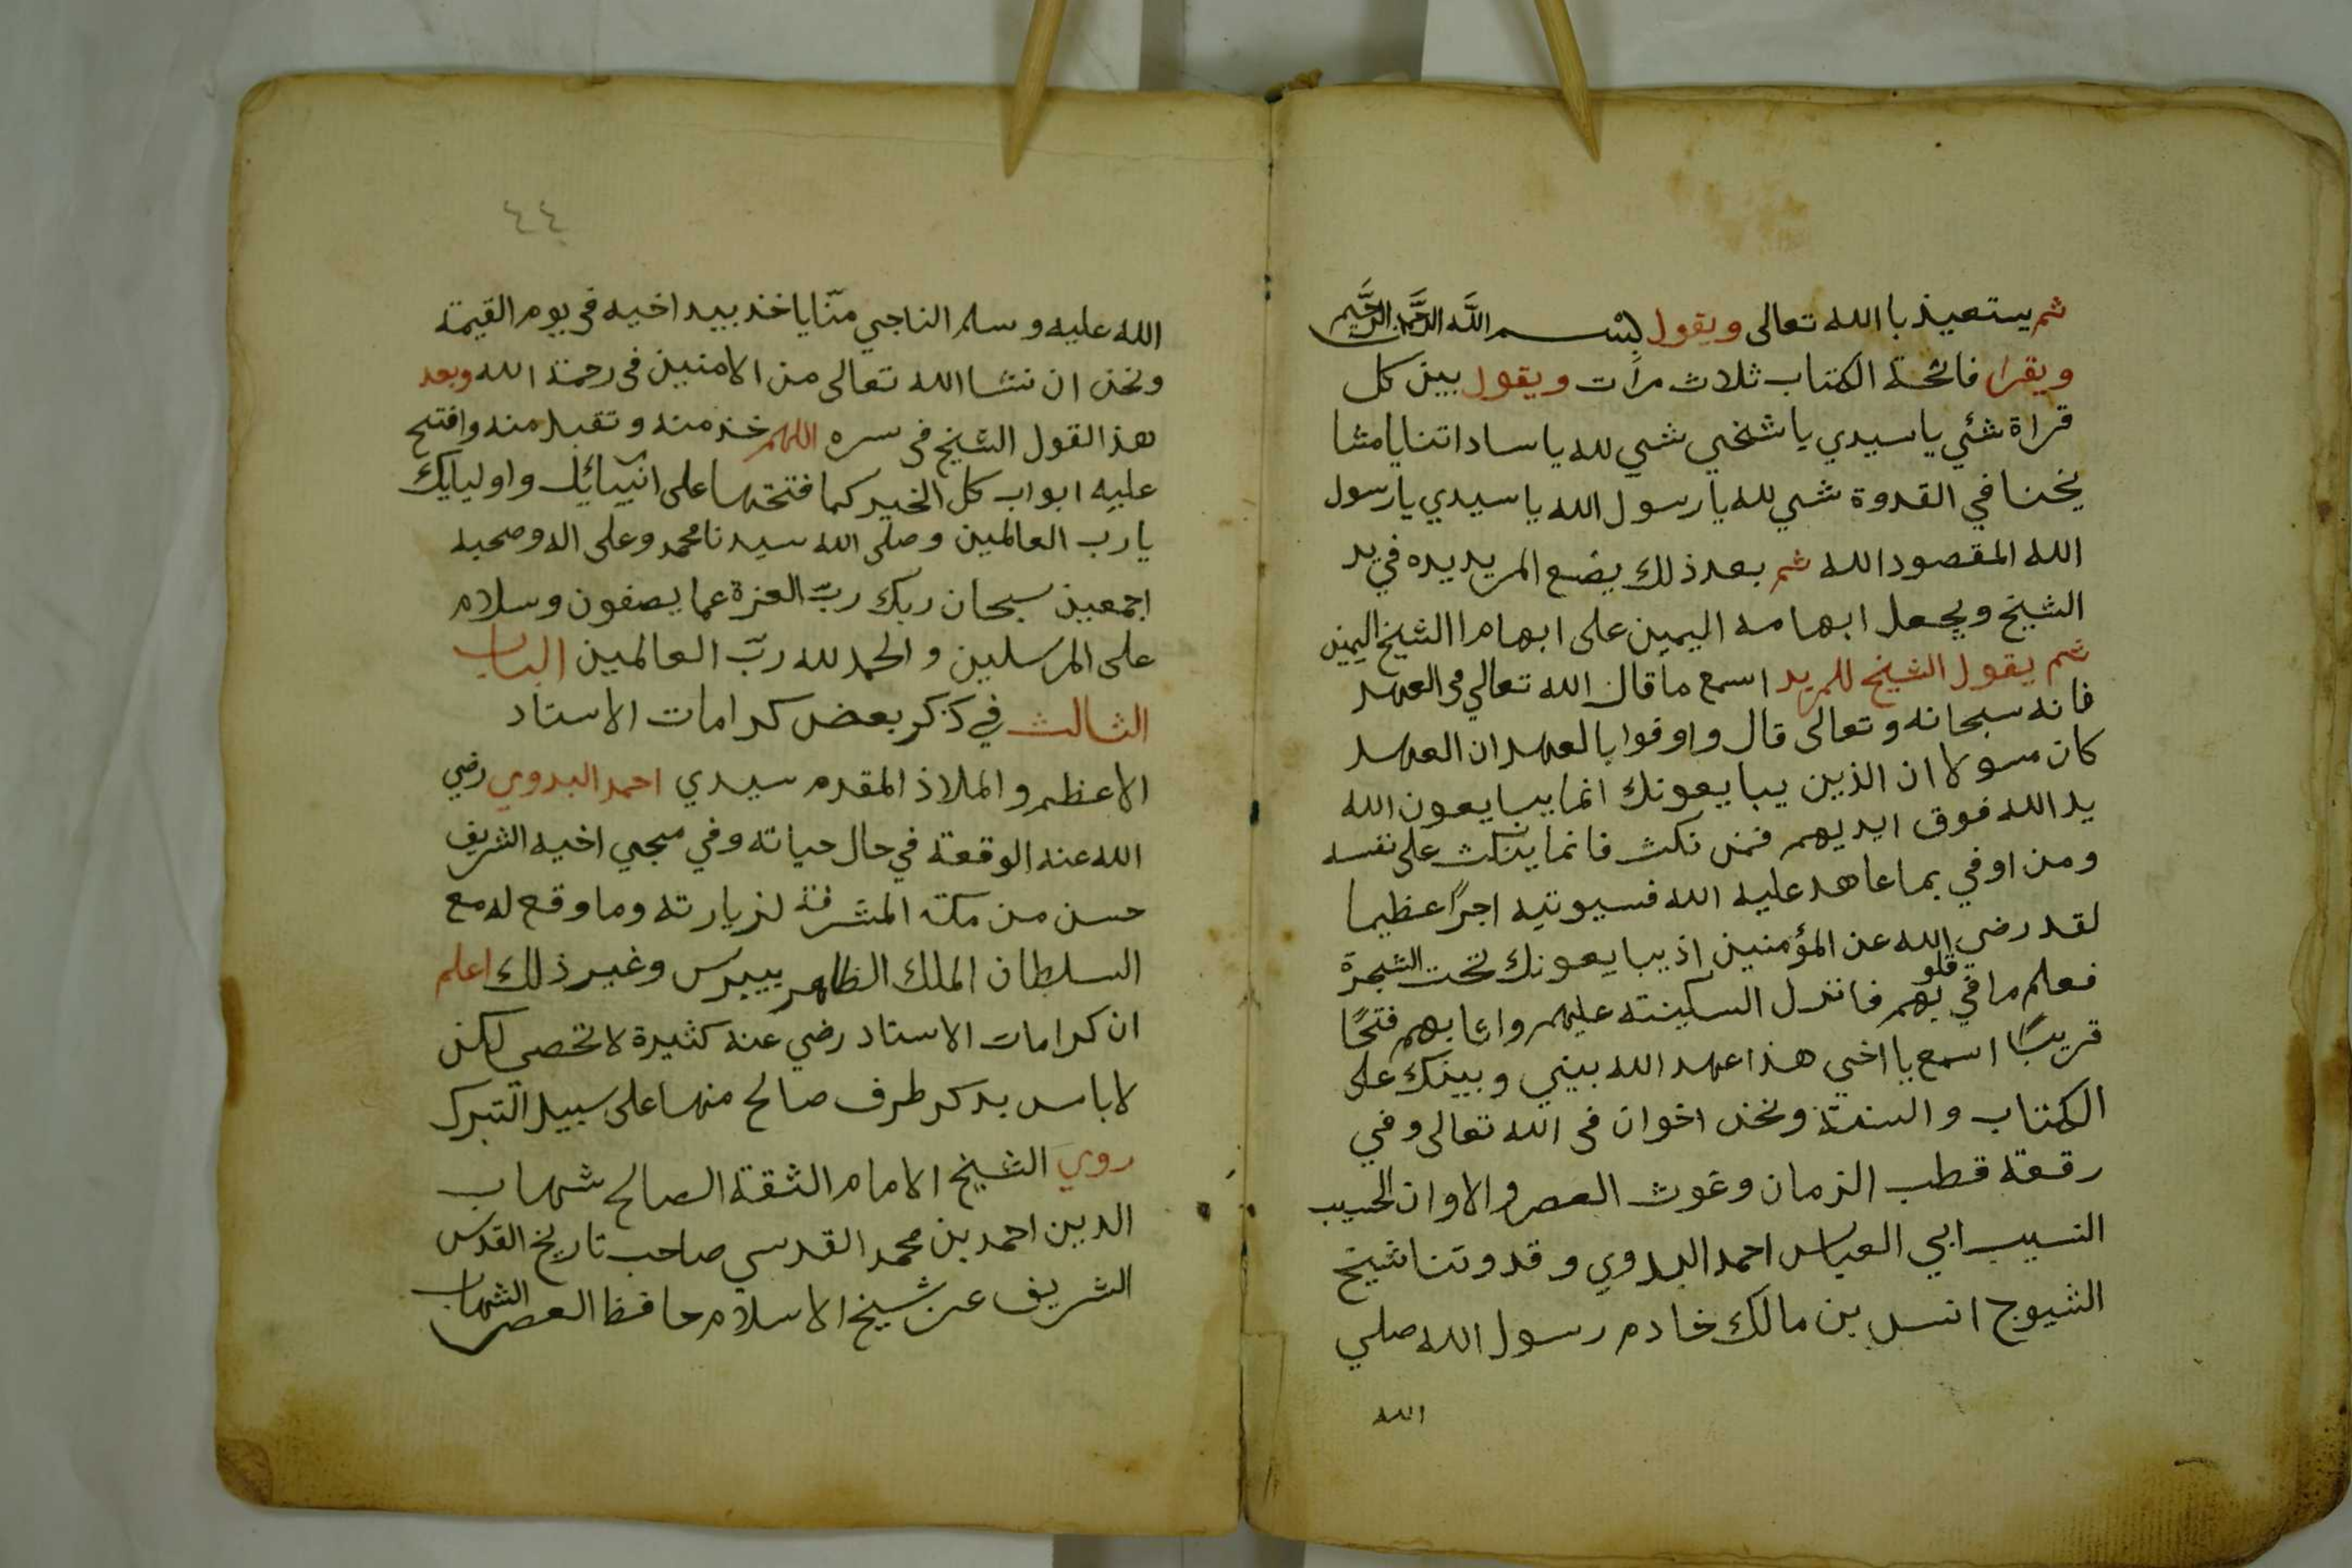 ثم يستعيذ با الله تعالى ويقول بسم الله الرحمن الرحيم
ويقرا فاتحة الكتاب ثلاث مرات ويقول بين كل
قراة شئي يا سيدي يا شخي شي لله يا ساداتنا يا مشا
يخنا في القدوة شي لله يا رسول الله يا سيدي يا رسول
الله المقصود الله ثم بعد ذلك يضع المريد يده في يد
الشيخ ويجعل ابهامه اليمين على ابهام االشيخ اليمين
ثم يقول الشيخ للمريد اسمع ما قال الله تعالي في العهد
فانه سبحانه وتعالى قال واوفوا بالعهد ان العهد
كان مسولا ان الذين يبايعونك انما يبايعون الله
يد الله فوق ايديهم فمن نكث فانما ينكث على نفسه
ومن اوفي بما عاهد عليه الله فسيوتيه اجرًا عظيما
لقد رضي الله عن المؤمنين اذ يبايعونك تحت الشجرة
فعلم ما في قلوبهم فانزل السكينته عليهم واثابهم فتحًا
قريبًا اسمع يا اخي هذا عهد الله بيني وبينك على
الكتاب والسنة ونحن اخوان في الله تعالى وفي
رقعة قطب الزمان وغوث العصر والاوان الحسيب
النسيب ابي العباس احمد البدوي وقدوتنا شيخ
الشيوج انس بن مالك خادم رسول الله صلي
الله
٤٤
الله عليه وسلم الناجي منّا ياخذ بيد اخيه في يوم القيمة
ونحن ان نشا الله تعالى من الامنين في رحمة الله وبعد
هذ القول الشيخ في سره اللهم خذ منه وتقبل منه وافتح
عليه ابواب كل الخير كما فتحتها على انبيائك واوليايك
يا رب العالمين وصلى الله سيدنا محمد وعلى اله وصحبه
اجمعين سبحان ربك ربّ العزة عما يصفون وسلام
على المرسلين والحمد لله ربّ العالمين الباب
الثالث في ذكر بعض كرامات الاستاد
الاعظم والملاذ المقدم سيدي احمد البدوي رضي
الله عنه الوقعة في حال حياته وفي مجي اخيه الشريف
حسن من مكة المشرفة لزيارته وما وقع له مع
السلطان الملك الظاهر بيبرس وغير ذلك اعلم
ان كرامات الاستاد رضي عنه كثيرة لا تحصي لكن
لا باس بدكر طرف صالح منها على سبيل التبرك
روي الشيخ الامام الثقة الصالح شهاب
الدين احمد بن محمد القدسي صاحب تاريخ القدس
الشريف عن شيخ الاسلام حافظ العصر الشهاب